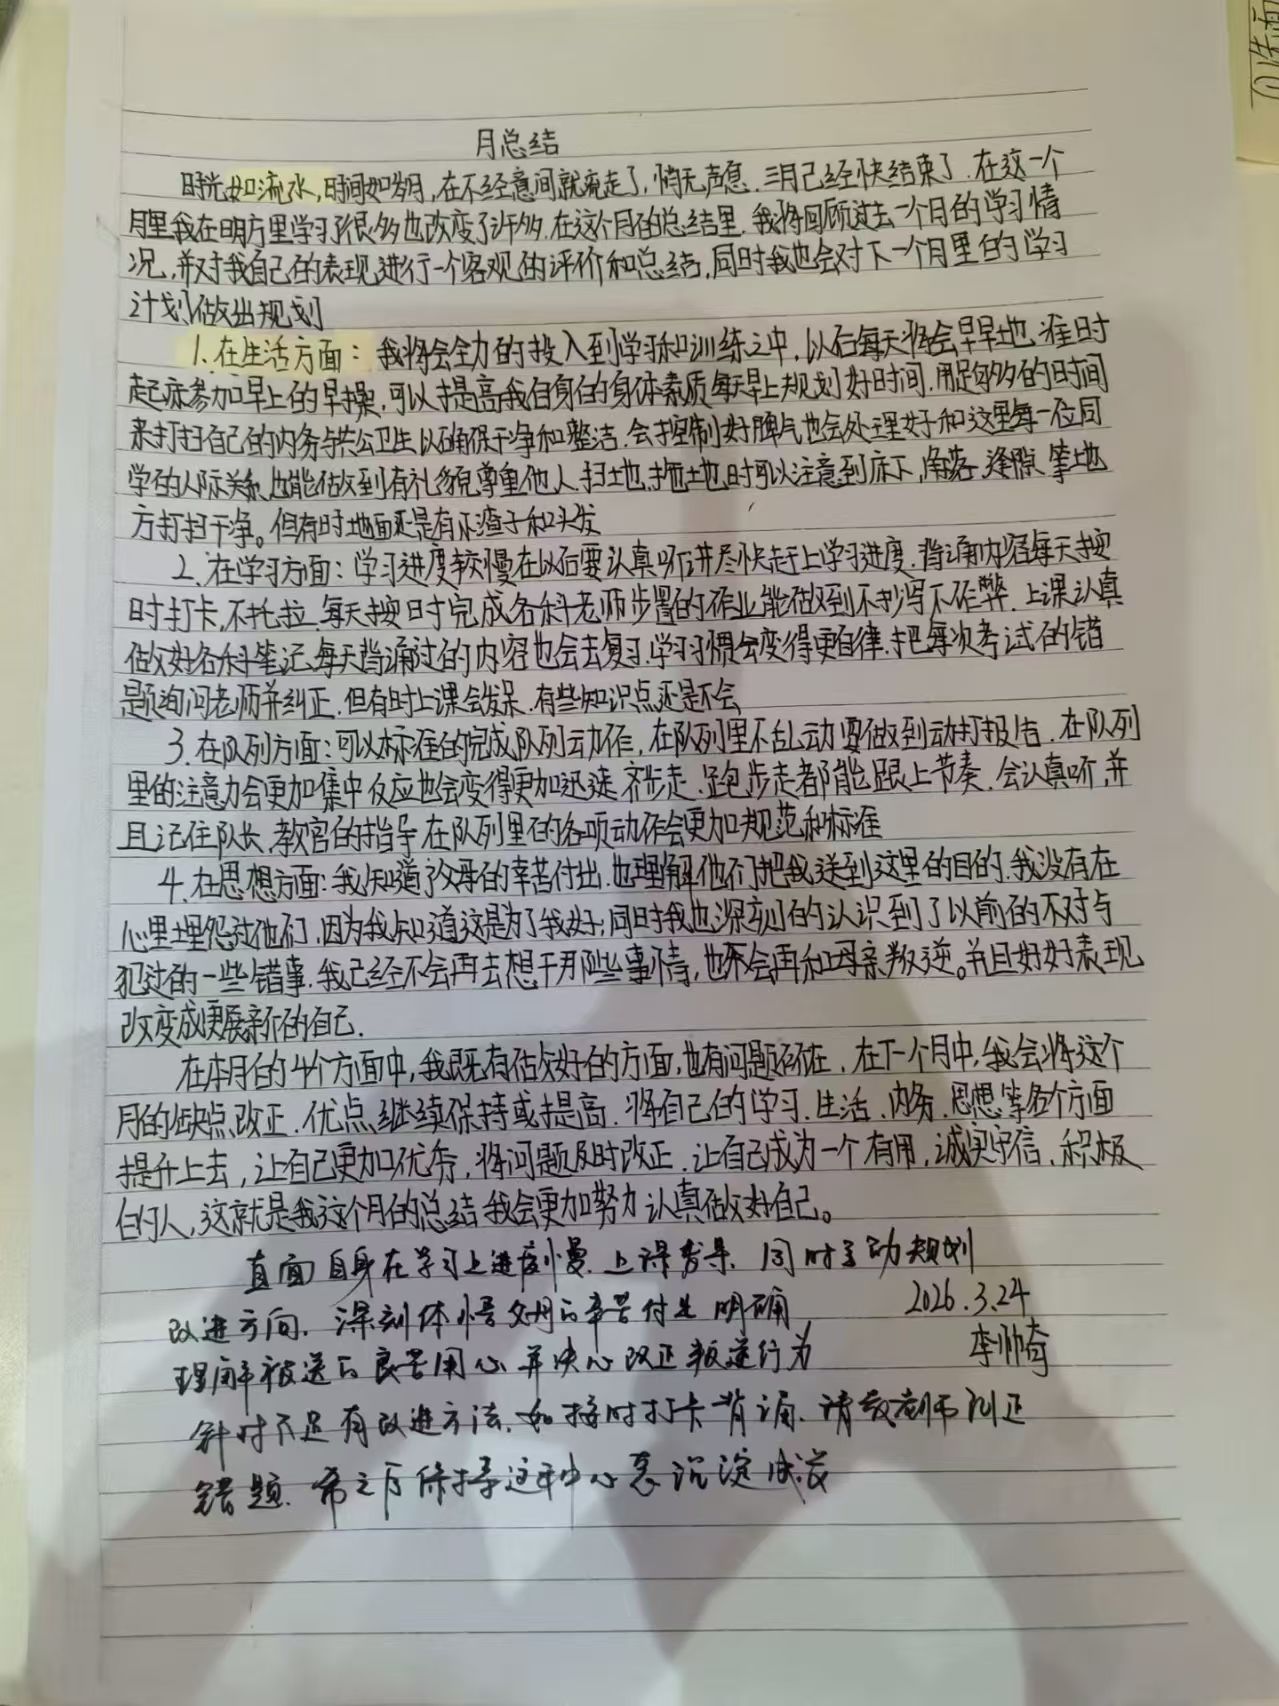 月总结
时光如流水,时间如岁月,在不经意间就流走了,悄无声息.三月已经快结束了.在这一个
月里我在明方里学习了很多也改变了许多.在这个月的总结里.我将回顾过去一个月的学习情
况,并对我自己的表现进行一个客观的评价和总结,同时我也会对下一个月里的学习
计划做出规划
1.在生活方面:我将会全力的投入到学习和训练之中,以后每天将会早早地准时
起床参加早上的早操,可以提高我自身的身体素质每天早上规划好时间.用足够多的时间
来打扫自己的内务与公共卫生以确保干净和整洁.会控制好脾气也会处理好和这里每一位同
学的人际关系也能做到有礼貌尊重他人.扫地,拖地时可以注意到床下,角落.缝隙.等地
方打扫干净。但有时地面还是有小渣子和头发
2.在学习方面:学习进度较慢在以后要认真听讲尽快赶上学习进度.背诵内容每天按
时打卡,不托拉.每天按时完成各科老师步置的作业能做到不抄写不作弊.上课认真
做好各科笔记.每天背诵过的内容也会去复习.学习习惯会变得更自律.把每次考试的错
题询问老师并纠正.但有时上课会发呆.有些知识点还是不会
3.在队列方面:可以标准的完成队列动作,在队列里不乱动要做到动打报告.在队列
里的注意力会更加集中反应也会变得更加迅速.齐步走.跑步走都能跟上节奏.会认真听,并
且记住队长.教官的指导在队列里的各项动作会更加规范和标准
4.在思想方面:我知道了父母的辛苦付出.也理解他们把我送到这里的目的.我没有在
心里埋怨过他们,因为我知道这是为了我好;同时我也深刻的认识到了以前的不对与
犯过的一些错事.我已经不会再去想干那些事情,也不会再和母亲叛逆。并且好好表现
改变成更新的自己.
在本月的4个方面中,我既有做好的方面,也有问题存在.在下一个月中,我会将这个
月的缺点改正.优点继续保持或提高.将自己的学习.生活.内务.思想等各个方面
提升上去,让自己更加优秀,将问题及时改正.让自己成为一个有用,诚实守信、积极
的人,这就是我这个月的总结我会更加努力认真做好自己。
直面自身在学习上进度慢.上课发呆.同时主动规划
改进方向.深刻体悟父母的辛苦付出 明确 2026.3.24
理解被送的良苦用心并决心改正叛逆行为 李帅奇
针对不足有改进方法.如按时打卡背诵.请教老师纠正
错题.希之后保持这种心态沉淀成长